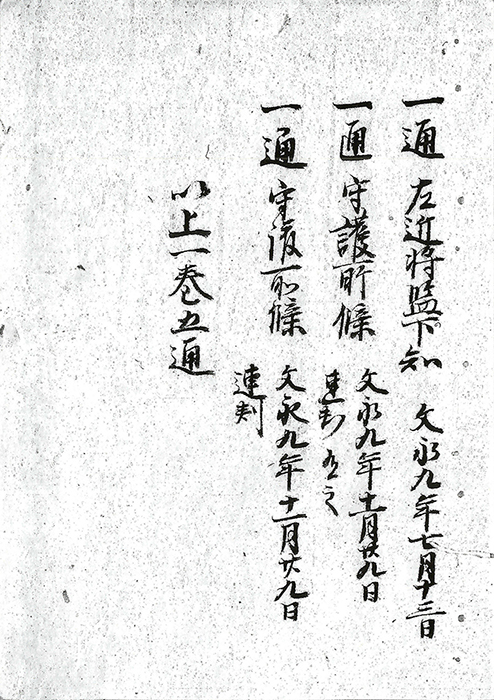 一通 左近将監下知 文永九年七月十三日
一通 守護所條 文永九年十一月廿九日
連判 有之
一通 守護所條 文永九年十一月廿九日
連判
以上一巻五通